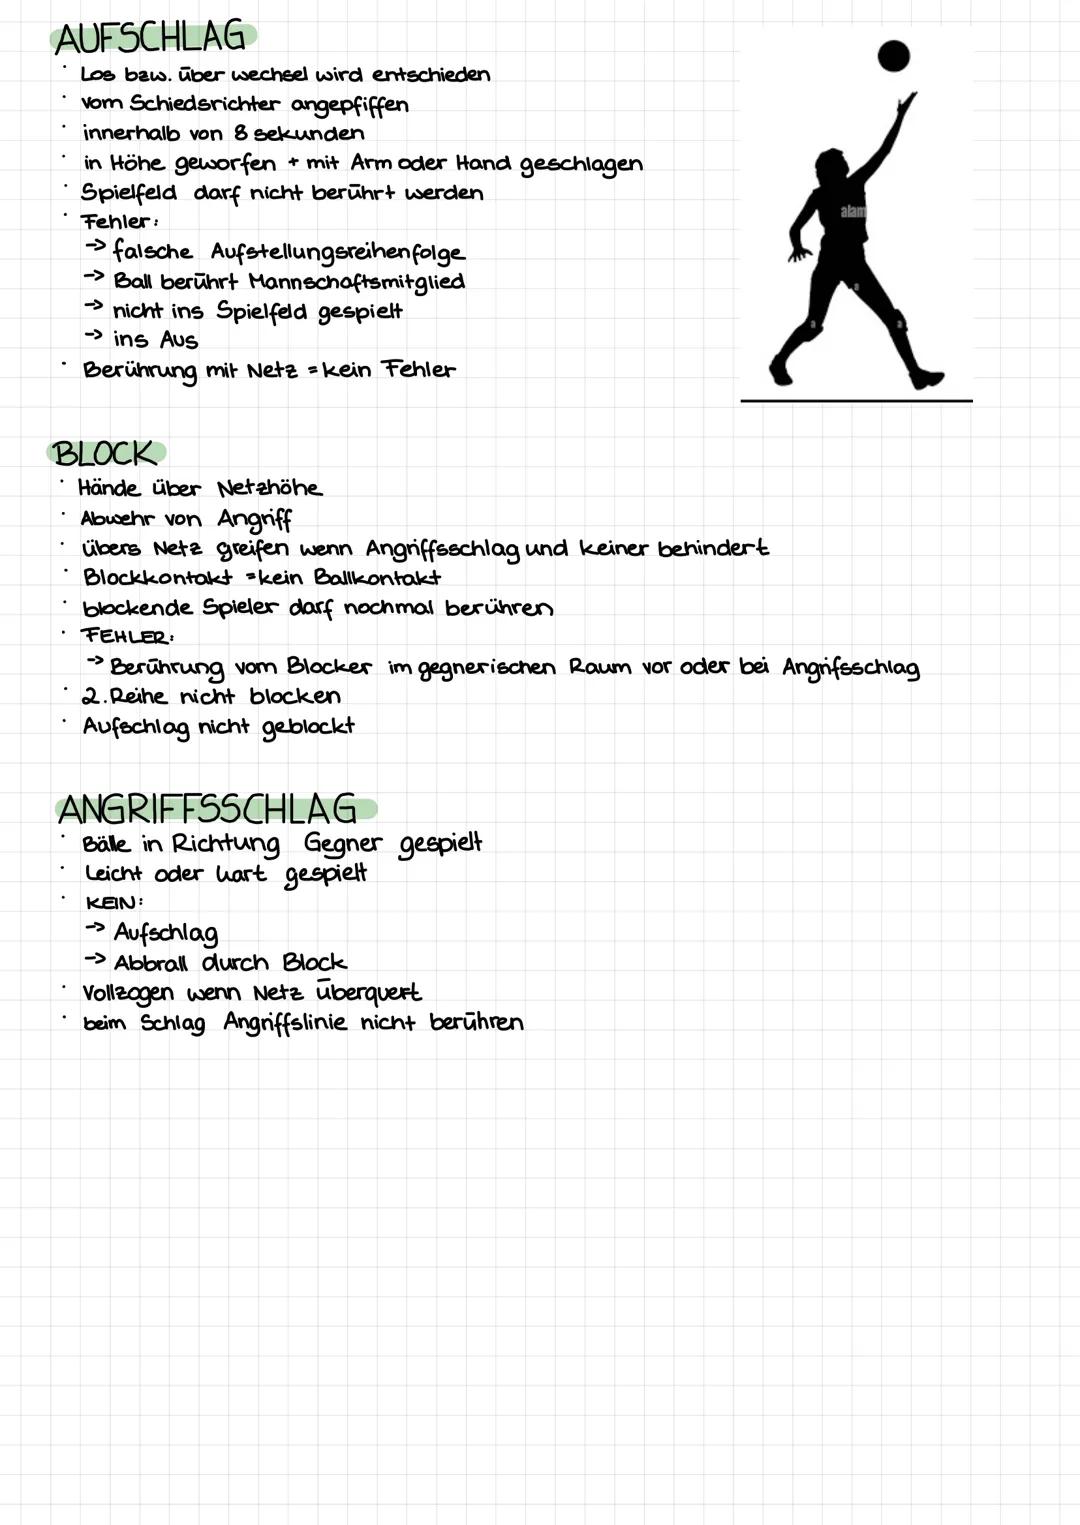 AUFSCHLAG
· Los bzw. über wechsel wird entschieden
· vom Schiedsrichter angepfiffen
· innerhalb von 8 sekunden
· in Höhe geworfen + mit Arm oder Hand geschlagen
· Spielfeld darf nicht berührt werden
· Fehler:
-> falsche Aufstellungsreihenfolge
-> Ball berührt Mannschaftsmitglied
-> nicht ins Spielfeld gespielt
-> ins Aus
· Berührung mit Netz = kein Fehler
alam
a
a
a
BLOCK
· Hände über Netzhöhe
· Abwehr von Angriff
· übers Netz greifen wenn Angriffsschlag und keiner behindert
· Blockkontakt = kein Ballkontakt
· blockende Spieler darf nochmal berühren
· FEHLER:
-> Berührung vom Blocker im gegnerischen Raum vor oder bei Angrifsschlag
· 2. Reihe nicht blocken
· Aufschlag nicht geblockt
ANGRIFFSSCHLAG
· Bälle in Richtung Gegner gespielt
· Leicht oder hart gespielt
· KEIN:
-> Aufschlag
-> Abbrall durch Block
· Vollzogen wenn Netz überquert
· beim Schlag Angriffslinie nicht berühren